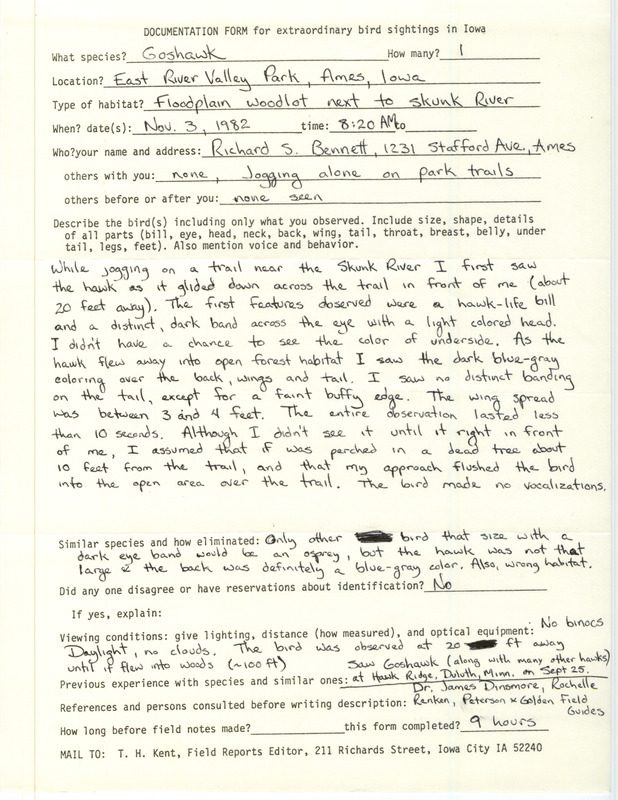 DOCUMENTATION FORM for extraordinary bird sightings in Iowa
What species? Goshawk How many? 1
Location? East River Valley Park, Ames, Iowa
Type of habitat? Floodplain woodlot next to Skunk River
When? date(s): Nov. 3, 1982 time: 8:20 AM to
Who?your name and address: Richard S. Bennett, 1231 Stafford Ave, Ames
others with you: none, Jogging alone on park trails
others before or after you: none seen
Describe the bird(s) including only what you observed. Include size, shape, details
of all parts (bill, eye, head, neck, back, wing, tail, throat, breast, belly, under
tail, legs, feet). Also mention voice and behavior.
While jogging on a trail near the Skunk River I first saw
the hawk as it glided down across the trail in front of me (about
20 feet away). The first features observed were a hawk-life bill
and a distinct, dark band across the eye with a light colored head.
I didn't have a chance to see the color of underside. As the
hawk flew away into open forest habitat I saw the dark blue-gray
coloring over the back, wings and tail. I saw no distinct banding
on the tail, except for a faint buffy edge. The wing spread
was between 3 and 4 feet. The entire observation lasted less
than 10 seconds. Although I didn't see it until it right in front
of me, I assumed that if was perched in a dead tree about
10 feet from the trail, and that my approach flushed the bird
into the open area over the trail. The bird made no vocalizations.
Similar species and how eliminated: Only other bird that size with a
dark eye band would be an osprey, but the hawk was not that
large & the back was definitely a blue-gray color. Also, wrong habitat.
Did any one disagree or have reservations about identification? No
If yes, explain:
Viewing conditions: give lighting, distance (how measured), and optical equipment: No binocs
Daylight, no clouds. The bird was observed at 20 ft away
until it flew into woods (~100 ft) Saw Goshawk (along with many other hawks)
Previous experience with species and similar ones: at Hawk Ridge, Duluth, Minn. on Sept 25.
Dr. James Dinsmore, Rochelle
References and persons consulted before writing description: Renken, Peterson & Golden Field
Guides
How long before field notes made? this form completed? 9 hours
MAIL TO: T. H. Kent, Field Reports Editor, 211 Richards Street, Iowa City IA 52240